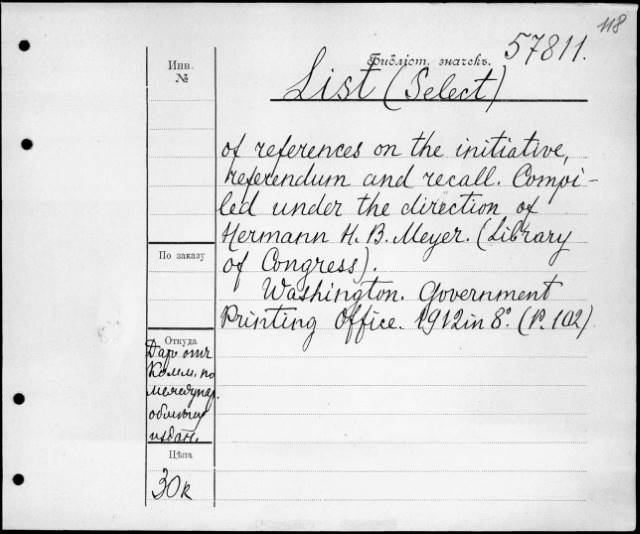 118
57811.
Библіот. значекъ.
Инв.
№
List (Select)
of references on the initiative,
referendum and recall. Compi-
led under the direction of
Hermann H. B. Meyer. (Library
of Congress).
Washington. Government
Printing Office. 1912 in 8º. (P. 102)
По заказу
Откуда
Даръ отъ
Комм. по
междунар.
обмѣну
издан.
Цѣна
30к